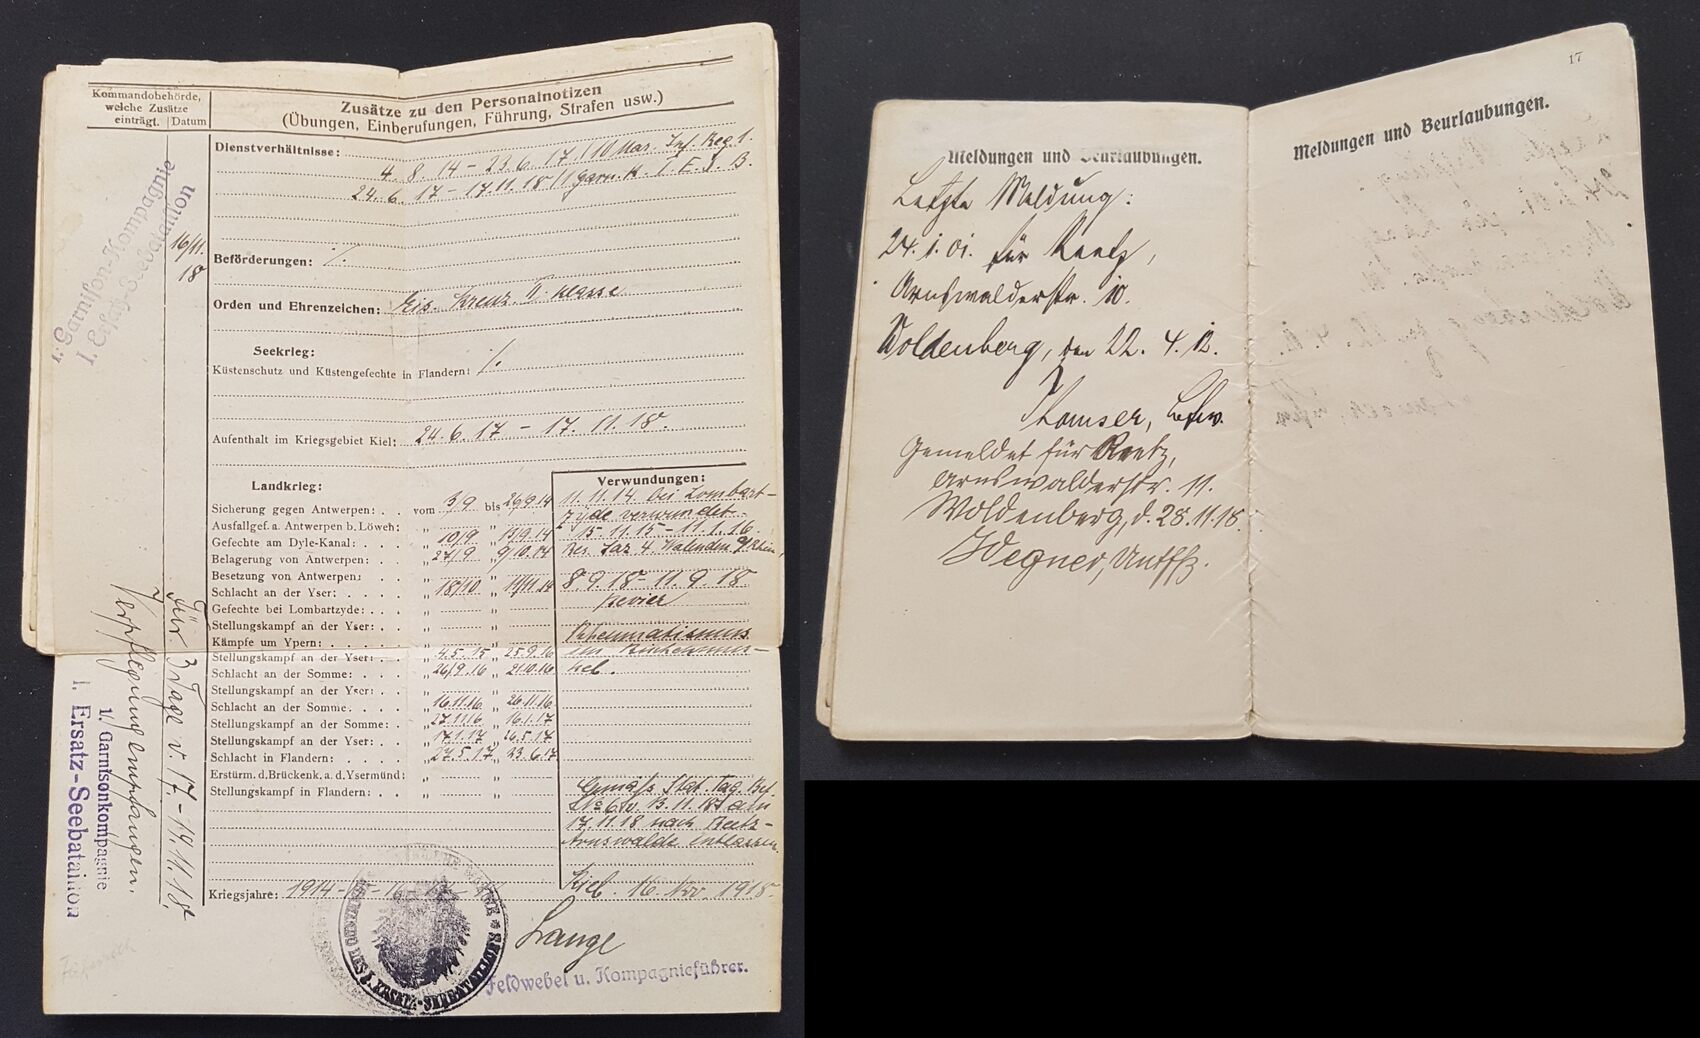 Kommandobehörde,
welche Zusätze
einträgt.
Datum
Zusätze zu den Personalnotizen
(Übungen, Einberufungen, Führung, Strafen usw.)
1. Garnison-Kompagnie
I. Ersatz-Seebataillon
16/11.
18
Dienstverhältnisse:
4. 8. 14 – 23. 6. 17 Mar. Inf. Reg. 1.
24. 6. 17 – 17. 11. 18 Garn. K. I. E. S. B.
Beförderungen: ·/.
Orden und Ehrenzeichen: Eis. Kreuz II. Klasse
Seekrieg:
Küstenschutz und Küstengefechte in Flandern: ·/.
Aufenthalt im Kriegsgebiet Kiel: 24. 6. 17 – 17. 11. 18.
Landkrieg:
Sicherung gegen Antwerpen: . . vom 3/9 bis 26/9.14
Ausfallgef. a. Antwerpen b. Löweh: „ 10/9 „ 13/9.14
Gefechte am Dyle-Kanal: . . . „ 27/9 „ 9/10.14
Belagerung von Antwerpen: . . „ „
Besetzung von Antwerpen: . . „ „
Schlacht an der Yser: . . . „ 18/10 „ 11/11.14
Gefechte bei Lombartzyde: . . . „ „
Stellungskampf an der Yser: . . „ „
Kämpfe um Ypern: . . . „ „
Stellungskampf an der Yser: . . „ 4.5.15 „ 25.9.16
Schlacht an der Somme: . . . „ 26/9.16 „ 21.10.16
Stellungskampf an der Yser: . . „ „
Schlacht an der Somme: . . . „ 16.11.16 „ 26.11.16
Stellungskampf an der Somme: . . „ 27.11.16 „ 16.1.17
Stellungskampf an der Yser: . . „ 17.1.17 „ 26.5.17
Schlacht in Flandern: . . . . „ 27.5.17 „ 23.6.17
Erstürm. d. Brückenk. a. d. Ysermünd: „ „
Stellungskampf in Flandern: . . . „ „
Kriegsjahre: 1914 –
Verwundungen:
11. 11. 14 bei Lombart-
zyde verwundet.
15. 11. 15 – 11. 1. 16
Res. Laz. 4. a/Rhein,
8. 9. 18 – 11. 9. 18
Revier
Rheumatismus
im Rückenmus-
kel.
Gemäß Stat. Tag. Bef.
v. 13. 11. 18 am
17. 11. 18 nach Reetz-
Arnswalde entlassen.
Kiel. 16. Nov. 1918.
Lange
Feldwebel u. Kompagnieführer.
ERSATZ-SEEBATAILLONS
Für 3 Tage v. 17. – 19. 11. 18.
Verpflegung empfangen.
1. Garnisonkompagnie
I. Ersatz-Seebataillon
Meldungen und Beurlaubungen.
Letzte Meldung:
24. 1. 01. für Reetz,
Arnswalderstr. 10.
Woldenberg, den 22. 4. 12.
Gemeldet für Reetz,
Arnswalderstr. 11.
Woldenberg, d. 28. 11. 18.
Wegner, Untffz.
17
Meldungen und Beurlaubungen.